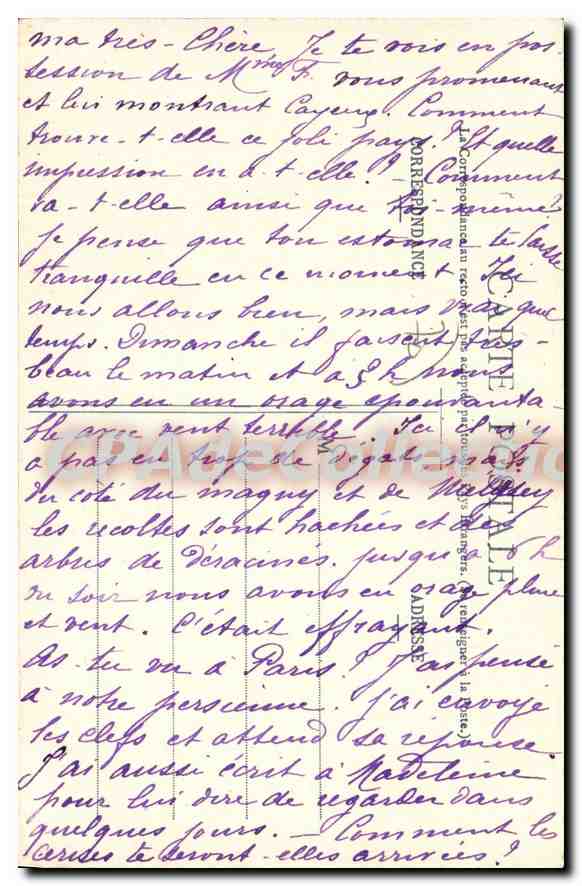 ma très-Chère, Je te vois en pos-
session de Mme F. vous promenant
et lui montrant Cayeux. Comment
trouve-t-elle ce joli pays? Et quelle
impression en a-t-elle? - Comment
va-t-elle ainsi que toi-même?
Je pense que ton estomac te laisse
tranquille en ce moment Ici
nous allons bien, mais quel
temps. Dimanche il faisait très-
beau le matin et à 3 h nous
avons eu un orage épouvanta-
ble avec vent terrible. Ici il n'y
a pas eu trop de dégats mais
du coté du magny et de
les récoltes sont hachées et des
arbres de déracinés. jusqu'à 6 h
du soir nous avons eu orage pluie
et vent. C'était effrayant.
As-tu vu à Paris? J'ai pensé
à notre persienne. j'ai envoyé
les clefs et attend sa réponse.
J'ai aussi écrit à Madeleine
pour lui dire de regarder dans
quelques jours. - Comment les
cerises te seront-elles arrivées?
CARTE POSTALE
La Correspondance au recto n'est pas acceptée par tous les pays étrangers. (Se renseigner à la Poste.)
CORRESPONDANCE
ADRESSE
CPAdeCollection